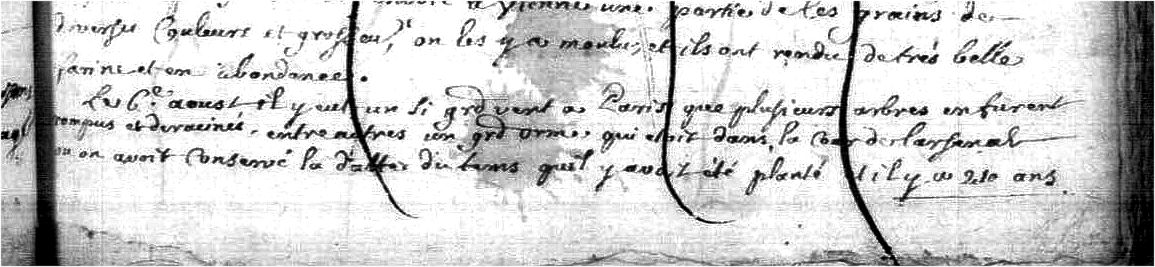 a vienne une partie de ces grains de
diverses Couleurs et grosseur, on les y a moulu, et ils ont rendu de trés belle
farine et en abondance.
Le 6e. aoust il y eut un si grd vent a Paris que plusieurs arbres en furent
rompus et deracinés, entre autres un grd orme qui etoit dans la cour de larsenal
ou on avoit Conservé la datte du tems quil y avoit été planté il y a 210 ans.